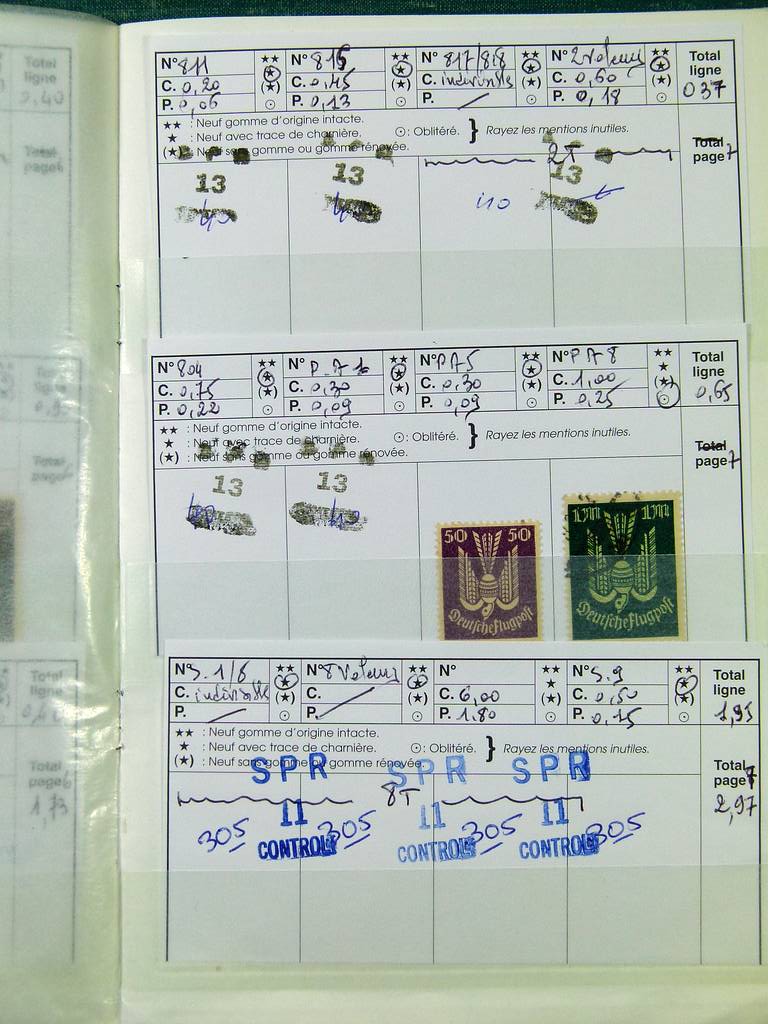 N° 811 ★★ N° 815 ★★ N° 817/818 ★★ N° 2 valeurs ★★ Total ligne
C. 0,20 ★ C. 0,45 ★ C. indivisible ★ C. 0,60 ★ 037
P. 0,06 (★) P. 0,13 (★) P. (★) P. 0,18 (★)
★★ : Neuf gomme d'origine intacte.
★ : Neuf avec trace de charnière. ⊙ : Oblitéré. } Rayez les mentions inutiles.
(★) : Neuf sans gomme ou gomme rénovée.
Total page 7
2T
13 13 13
40 110
N° 804 ★★ N° PA 1 ★★ N° PA5 ★★ N° PA 8 ★★ Total ligne
C. 0,75 ★ C. 0,30 ★ C. 0,30 ★ C. 1,00 ★ 0,65
P. 0,22 (★) P. 0,09 (★) P. 0,09 (★) P. 0,25 (★)
★★ : Neuf gomme d'origine intacte.
★ : Neuf avec trace de charnière. ⊙ : Oblitéré. } Rayez les mentions inutiles.
(★) : Neuf sans gomme ou gomme rénovée.
Total page 7
13 13
50 50
Deutsche Flugpost
1M 1M
Deutsche Flugpost
N° S.1/6 ★★ N° 8 Valeurs ★★ N° ★★ N° S.9 ★★ Total ligne
C. indivisible ★ C. ★ C. 6,00 ★ C. 0,50 ★ 1,95
P. (★) P. (★) P. 1.80 (★) P. 0,15 (★)
★★ : Neuf gomme d'origine intacte.
★ : Neuf avec trace de charnière. ⊙ : Oblitéré. } Rayez les mentions inutiles.
(★) : Neuf sans gomme ou gomme rénovée.
Total page 7
2,97
SPR SPR SPR
8T
11 11 11
305 305 305 305
CONTROLE CONTROLE CONTROLE
Total ligne
0,40
Total page 6
Total ligne
Total page
Total ligne
Total page 6
1,73